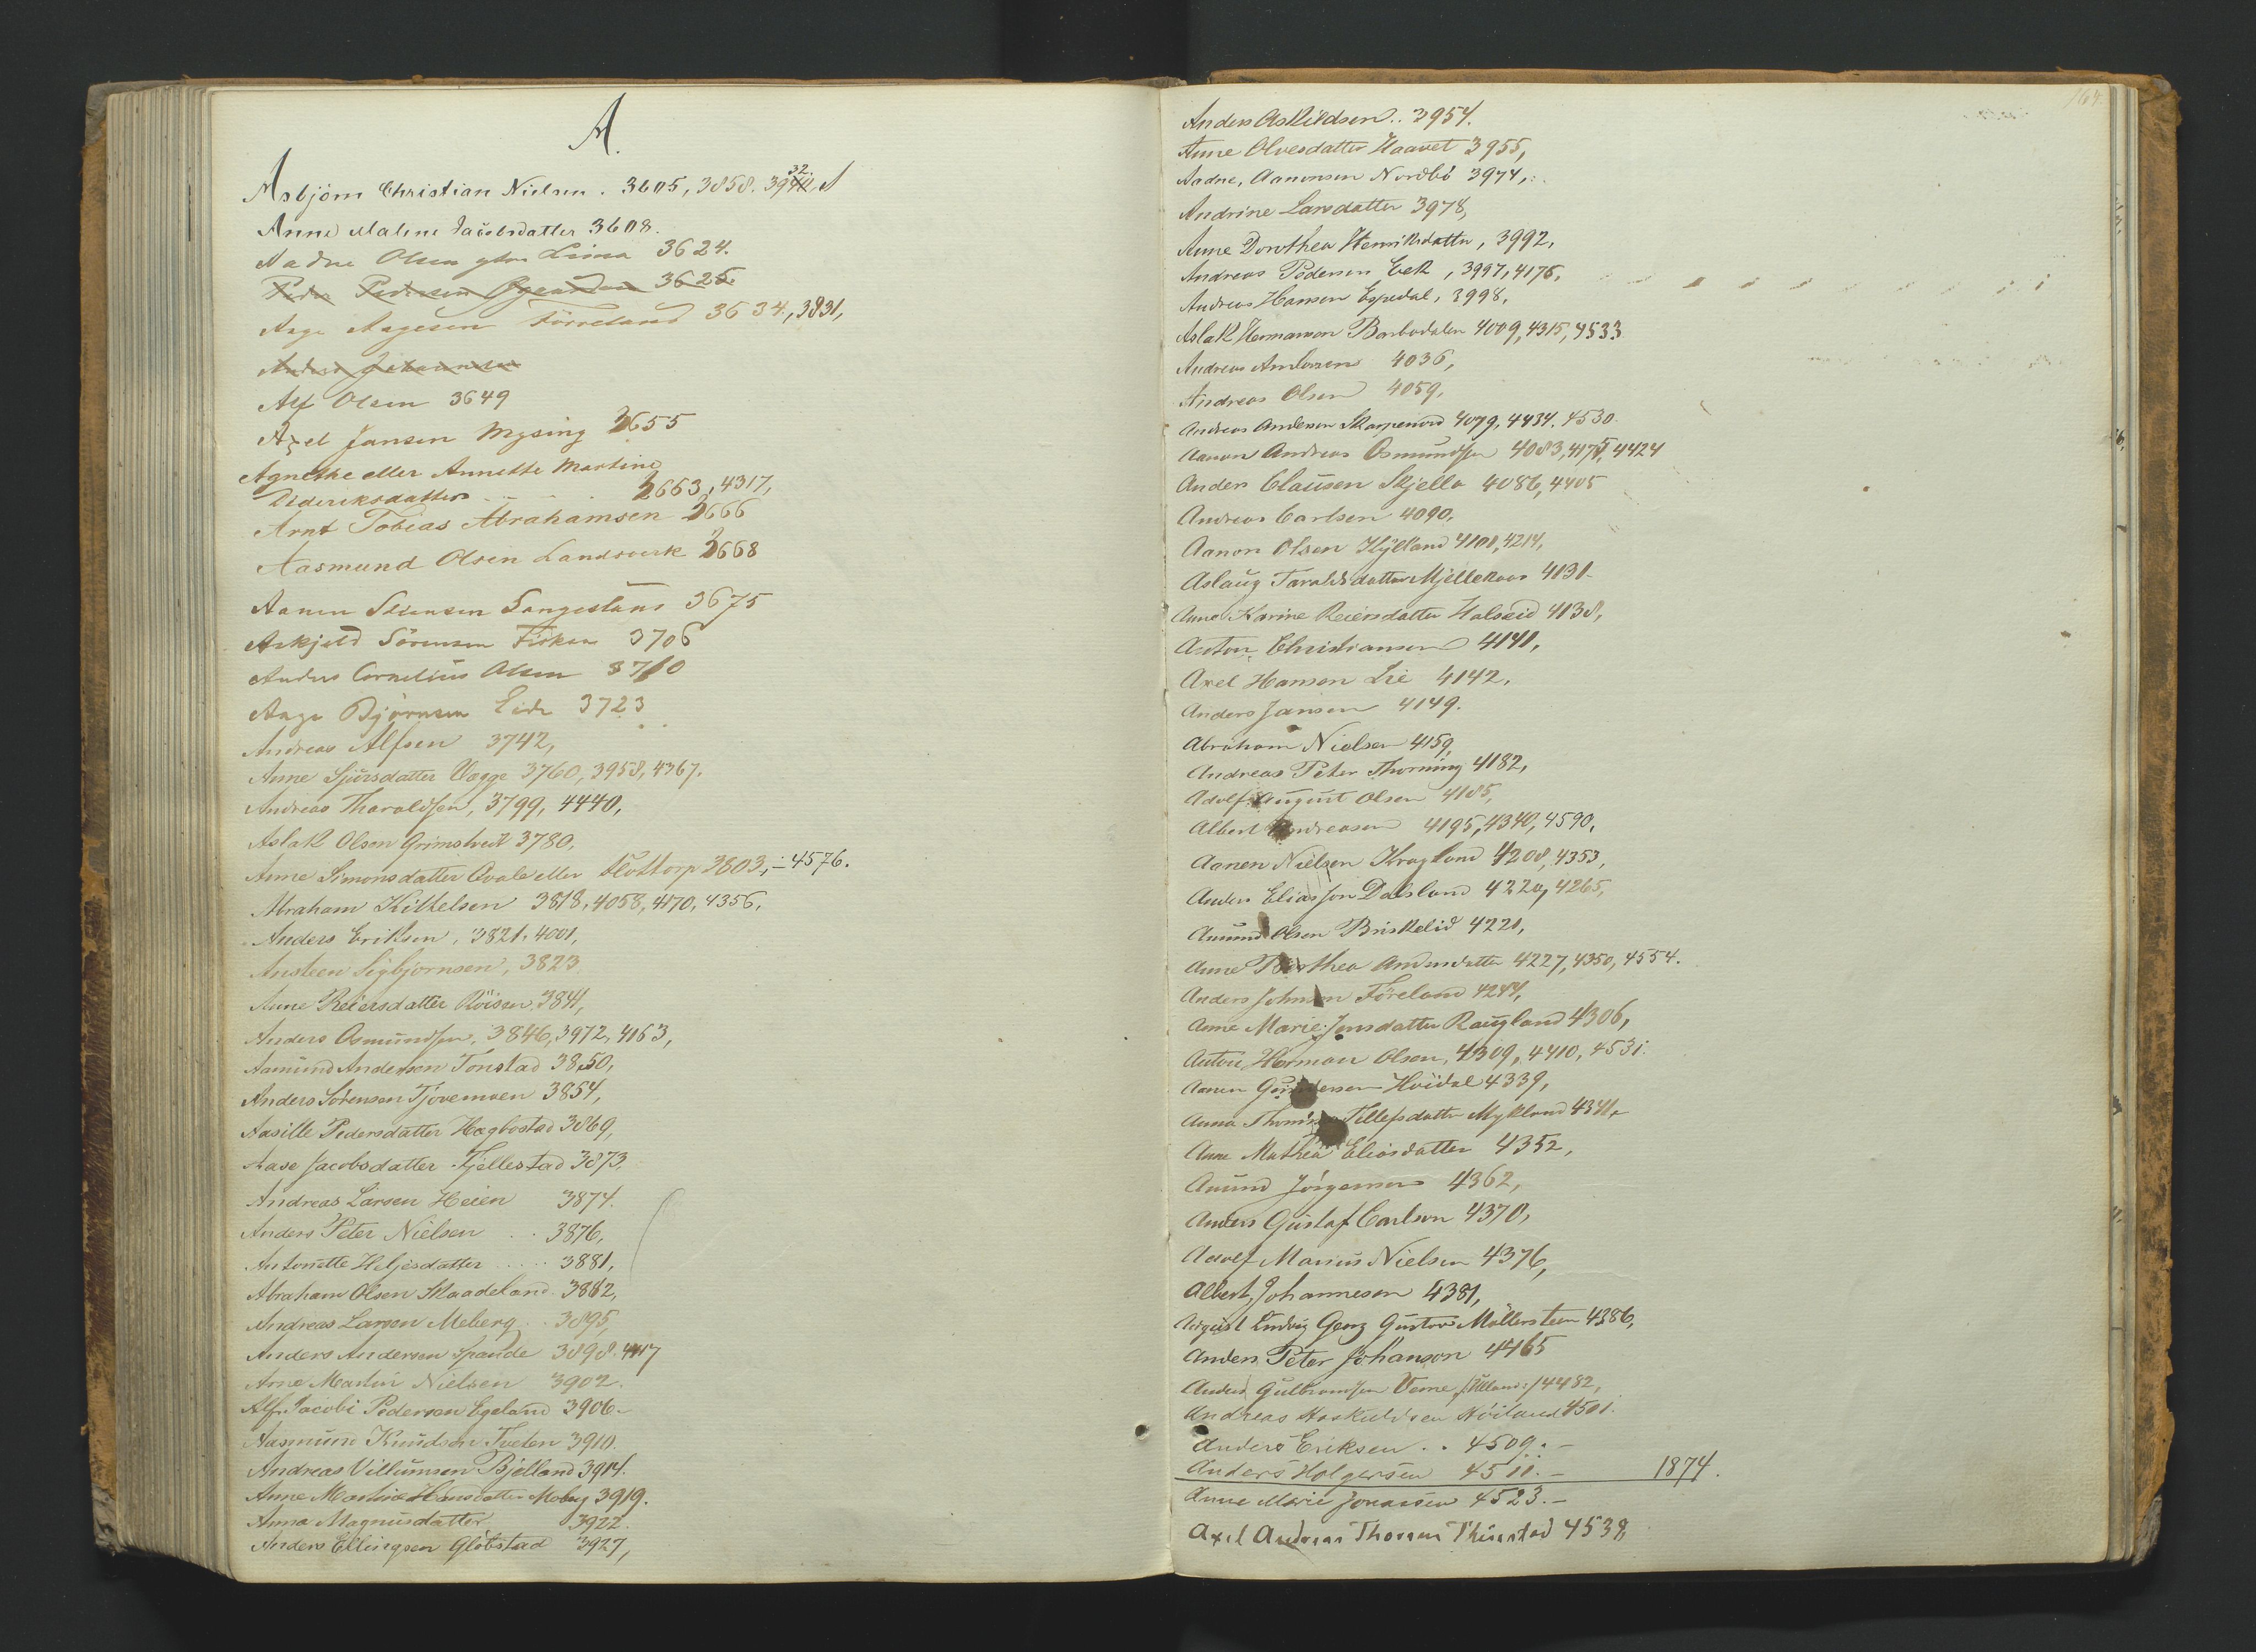 A.
Asbjörn Christian Nielsen . 3605, 3858. 3932.
Anne Malene Jacobsdatter 3608.
Aadne Olsen 3624.
Peder Pedersen 3625.
Aage Aagesen Förreland 3634, 3831,
Anders Johannesen
Alf Olsen 3649
Axel Jansen Mysing 3655
Agnethe eller Annette Martine
Dideriksdatter . . . 3663, 4317,
Arnt Tobias Abrahamsen 3666
Aasmund Olsen Landsverk 3668
Aanen Stiensen Langeslans 3675
Askjeld Sörensen Fisken 3706
Anders Cornelius Olsen 3710
Aage Björnsen Eide 3723
Andreas Alfsen 3742,
Anne Sjursdatter Vagge 3760, 3958, 4367.
Andreas Tharaldsen, 3799, 4440,
Aslak Olsen Grimstveit 3780,
Anne Simonsdatter Qvale eller Flottorp 3803, - 4576.
Abraham Kittelsen 3818, 4058, 4170, 4356,
Anders Eriksen, 3821, 4001,
Ansteen Sigbjørnsen, 3823
Anne Reiersdatter Röisen 3841,
Anders Osmundsen, 3846, 3972, 4163,
Aamund Andersen Tonstad 3850,
Anders Sörensen Tjövemoen 3854,
Aasille Pedersdatter Hægbostad 3869,
Aase Jacobsdatter Fjellestad 3873,
Andreas Larsen Heien 3874.
Anders Peter Nielsen . . 3876,
Antonette Heljesdatter . . . . 3881,
Abraham Olsen Skaadeland 3882,
Andreas Larsen Meberg . . 3895,
Anders Andersen Spande 3898. 4417
Arne Martin Nielsen 3902.
Alf Jacobi Pedersen Egeland 3906.
Aasmund Knudsen Tveten 3910.
Andreas Villumsen Bjelland 3914.
Anne Martine Hansdatter Moberg 3919.
Anna Magnusdatter 3922.
Anders Ellingsen Glöbstad 3927,
164.
Anders Askildsen . . 3954.
Anne Olvesdatter Haavet 3955,
Aadne, Aanonsen Nordbö 3974,
Andrine Larsdatter 3978,
Anne Dorothea Henriksdatter, 3992,
Andreas Pedersen Eek, 3997, 4176,
Andreas Hansen Espedal, 3998,
Aslak Hermansen Barbodalen 4009, 4315, 4533
Andreas Andersen 4036,
Andreas Olsen 4059,
Andreas Andersen Skarpenord 4079, 4434. 4530.
Aanon Andreas Osmundsen 4083, 4175, 4424
Anders Clausen Skjella 4086, 4405
Andreas Carlsen 4090,
Aanon Olsen Hylland 4101, 4214,
Aslaug Taraldsdatter Mjellekaas 4131.
Anne Karine Reiersdatter Halseid 4138,
Anton Christiansen 4141,
Axel Hansen Lie 4142,
Anders Jansen 4149.
Abraham Nielsen 4159,
Andreas Peter Thorning 4182,
Adolf August Olsen 4185,
Albert Andreasen 4195, 4340, 4590,
Aanen Nielsen Kragland 4208, 4353,
Anders Eliassen Dalsland 4220, 4265,
Amund Olsen Briskelid 4221,
Anne Dorthea Andersdatter 4227, 4350, 4554.
Anders Johnsen Föreland 4244,
Anne Marie Jensdatter Raugland 4306,
Anton Herman Olsen, 4309, 4410, 4531.
Aanen Gundersen Höidal 4339,
Anna Thomine Tellefsdatter Mykland 4341,
Anne Mathea Eliasdatter 4352,
Amund Jörgensen 4362,
Anders Gustaf Carlson 4370,
Adolf Marius Nielsen 4376,
Albert Johannesen 4381,
August Ludvig Georg Gustav Möllersteen 4386,
Anders Peter Johanson 4465
Anders Gulbransen Verne /: Ulland :/ 4482,
Andreas Haskuldsen Höiland 4501.
Anders Eriksen . . 4509. –
Anders Holgersen 4511. – 1874.
Anne Marie Jonassen 4523. –
Axel Andreas Thorsen Thinstad 4538,